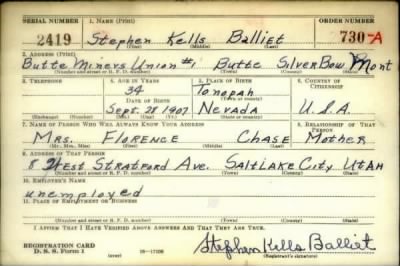 SERIAL NUMBER 1. NAME (Print) ORDER NUMBER
2419 Stephen Kells Balliet 730-A
(First) (Middle) (Last)
2. ADDRESS (Print)
Butte Miners Union #1 Butte SilverBow Mont
(Number and street or R. F. D. number) (Town) (County) (State)
3. TELEPHONE 4. AGE IN YEARS 5. PLACE OF BIRTH 6. COUNTRY OF CITIZENSHIP
34 Tonopah
DATE OF BIRTH (Town or county)
Sept. 28 1907 Nevada U.S.A.
(Exchange) (Number) (Mo.) (Day) (Yr.) (State or country)
7. NAME OF PERSON WHO WILL ALWAYS KNOW YOUR ADDRESS 8. RELATIONSHIP OF THAT PERSON
Mrs. Florence Chase Mother
(Mr., Mrs., Miss) (First) (Middle) (Last)
9. ADDRESS OF THAT PERSON
Stratford Ave. Salt Lake City Utah
(Number and street or R. F. D. number) (Town) (County) (State)
10. EMPLOYER'S NAME
unemployed
11. PLACE OF EMPLOYMENT OR BUSINESS
(Number and street or R. F. D. number) (Town) (County) (State)
I AFFIRM THAT I HAVE VERIFIED ABOVE ANSWERS AND THAT THEY ARE TRUE.
REGISTRATION CARD
D. S. S. Form 1 Stephen Kells Balliet
(Registrant's signature)